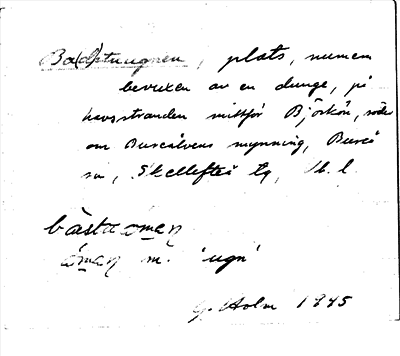 Ba(d)stuugnen, plats, numera
bevuxen av en dunge, på
havsstranden mittför Björkön, söder
om Bureälvens mynning, Bureå
sn, Skellefteå tg, Vb. l.
bàstɑomen
omen m. 'ugn'
G. Holm 1945